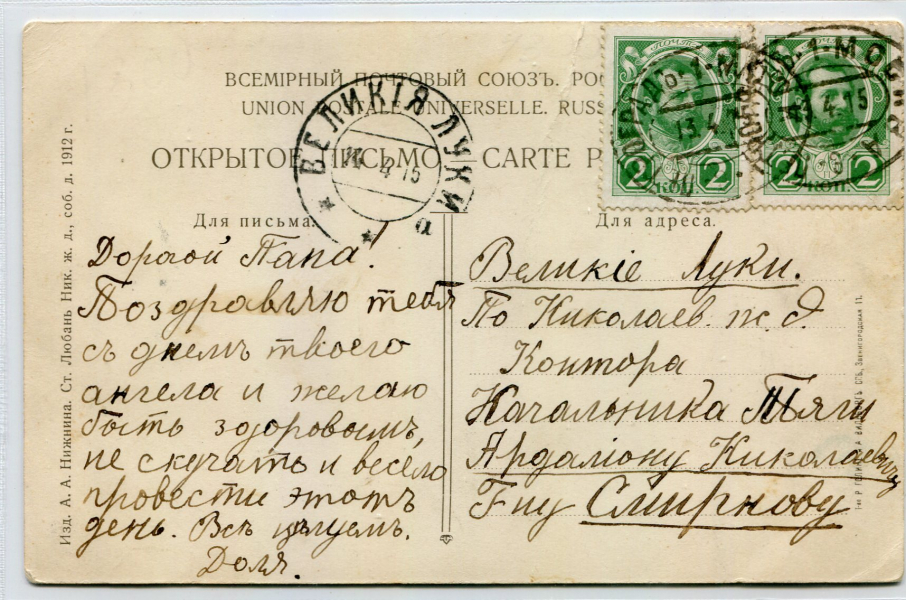 ВСЕМІРНЫЙ ПОЧТОВЫЙ СОЮЗЪ. РОС
UNION POSTALE UNIVERSELLE. RUSS
ОТКРЫТОЕ ПИСЬМО CARTE P
ПОЧТА
2 КОП 2
ПОЧТА
2 КОП 2
13.4.15
4.15
ВЕЛИКІЯ ЛУКИ
4 15
Для письма.
Дорогой Папа!
Поздравляю тебя
съ днемъ твоего
ангела и желаю
быть здоровымъ,
не скучать и весело
провести этотъ
день. Всѣ цѣлуемъ.
Доля.
Для адреса.
Великіе Луки.
По Николаев. ж. д.
Контора
Начальника Тяги
Ардаліону Николаевичу
Г-ну Смирнову
Изд. А. А. Нижнина. Ст. Любань Ник. ж. д., соб. д. 1912 г.